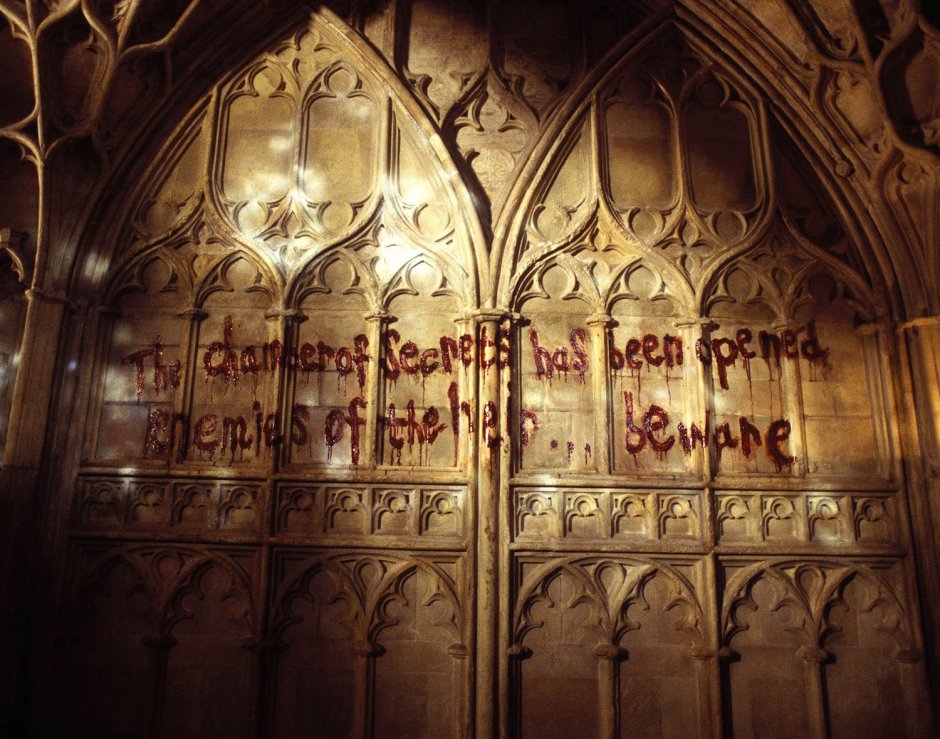 The chamber of Secrets has been opened
Enemies of the heir... beware